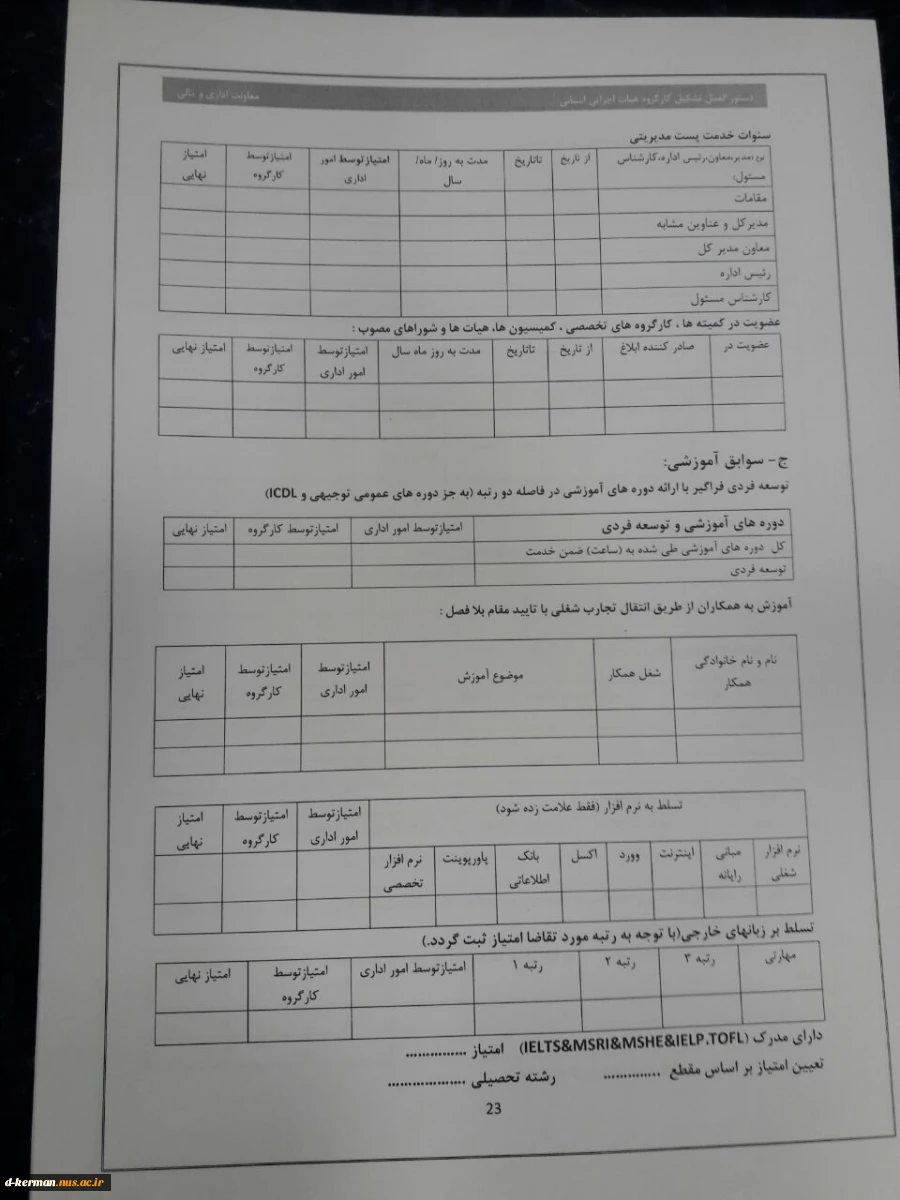 دستور العمل تشکیل کارگروه هیات اجرایی استانی
معاونت اداری و مالی
سنوات خدمت پست مدیریتی
نوع (مدیر،معاون،رئیس اداره،کارشناس مسئول) از تاریخ تاتاریخ مدت به روز/ ماه/ سال امتیازتوسط امور اداری امتیازتوسط کارگروه امتیاز نهایی
مقامات
مدیرکل و عناوین مشابه
معاون مدیر کل
رئیس اداره
کارشناس مسئول
عضویت در کمیته ها ، کارگروه های تخصصی ، کمیسیون ها، هیات ها و شوراهای مصوب :
عضویت در صادر کننده ابلاغ از تاریخ تاتاریخ مدت به روز ماه سال امتیازتوسط امور اداری امتیازتوسط کارگروه امتیاز نهایی
ج- سوابق آموزشی:
توسعه فردی فراگیر با ارائه دوره های آموزشی در فاصله دو رتبه (به جز دوره های عمومی توجیهی و ICDL)
دوره های آموزشی و توسعه فردی امتیازتوسط امور اداری امتیازتوسط کارگروه امتیاز نهایی
کل دوره های آموزشی طی شده به (ساعت) ضمن خدمت
توسعه فردی
آموزش به همکاران از طریق انتقال تجارب شغلی با تایید مقام بلا فصل :
نام و نام خانوادگی همکار شغل همکار موضوع آموزش امتیازتوسط امور اداری امتیازتوسط کارگروه امتیاز نهایی
تسلط به نرم افزار (فقط علامت زده شود) امتیازتوسط امور اداری امتیازتوسط کارگروه امتیاز نهایی
نرم افزار شغلی مبانی رایانه اینترنت وورد اکسل بانک اطلاعاتی پاورپوینت نرم افزار تخصصی
تسلط بر زبانهای خارجی(با توجه به رتبه مورد تقاضا امتیاز ثبت گردد.)
مهارتی رتبه ۳ رتبه ۲ رتبه ۱ امتیازتوسط امور اداری امتیازتوسط کارگروه امتیاز نهایی
دارای مدرک (IELTS&MSRI&MSHE&IELP.TOFL) امتیاز ...............
تعیین امتیاز بر اساس مقطع .............. رشته تحصیلی ...................
23
d-kerman.nus.ac.ir